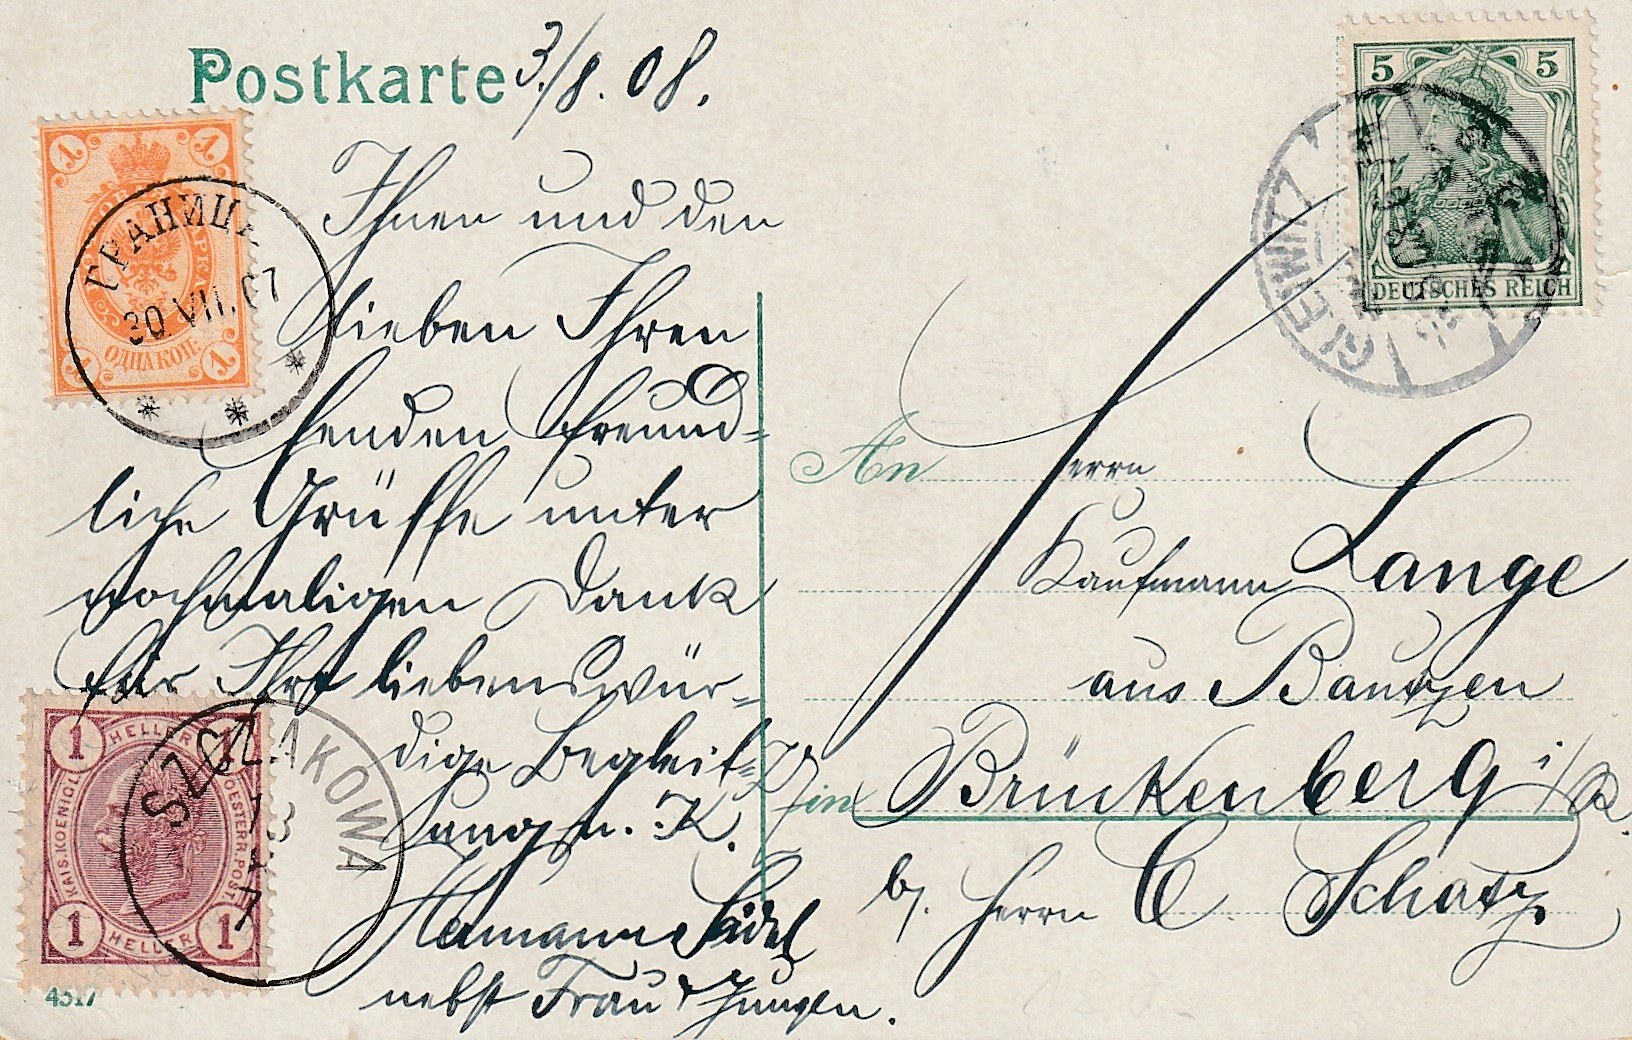 Postkarte 3./8. 08.
Ihnen und den
lieben Ihren
senden freund=
liche Grüsse unter
nochmaligen Dank
für Ihre liebenswür=
dige Begleit=
ung
Hermann
nebst Frau & Jungen.
An Herrn
Kaufmann Lange
aus Bautzen
in Brückenberg i/R.
b/. Herrn C Schatz
5 5
DEUTSCHES REICH
GLEIWITZ
1 1
ОДНА КОП.
1 1
ГРАНИЦА
30.VII.07
1 HELLER 1
KAIS.KOENIGL. OESTERR.POST
1 HELLER 1
SZCZAKOWA
4517